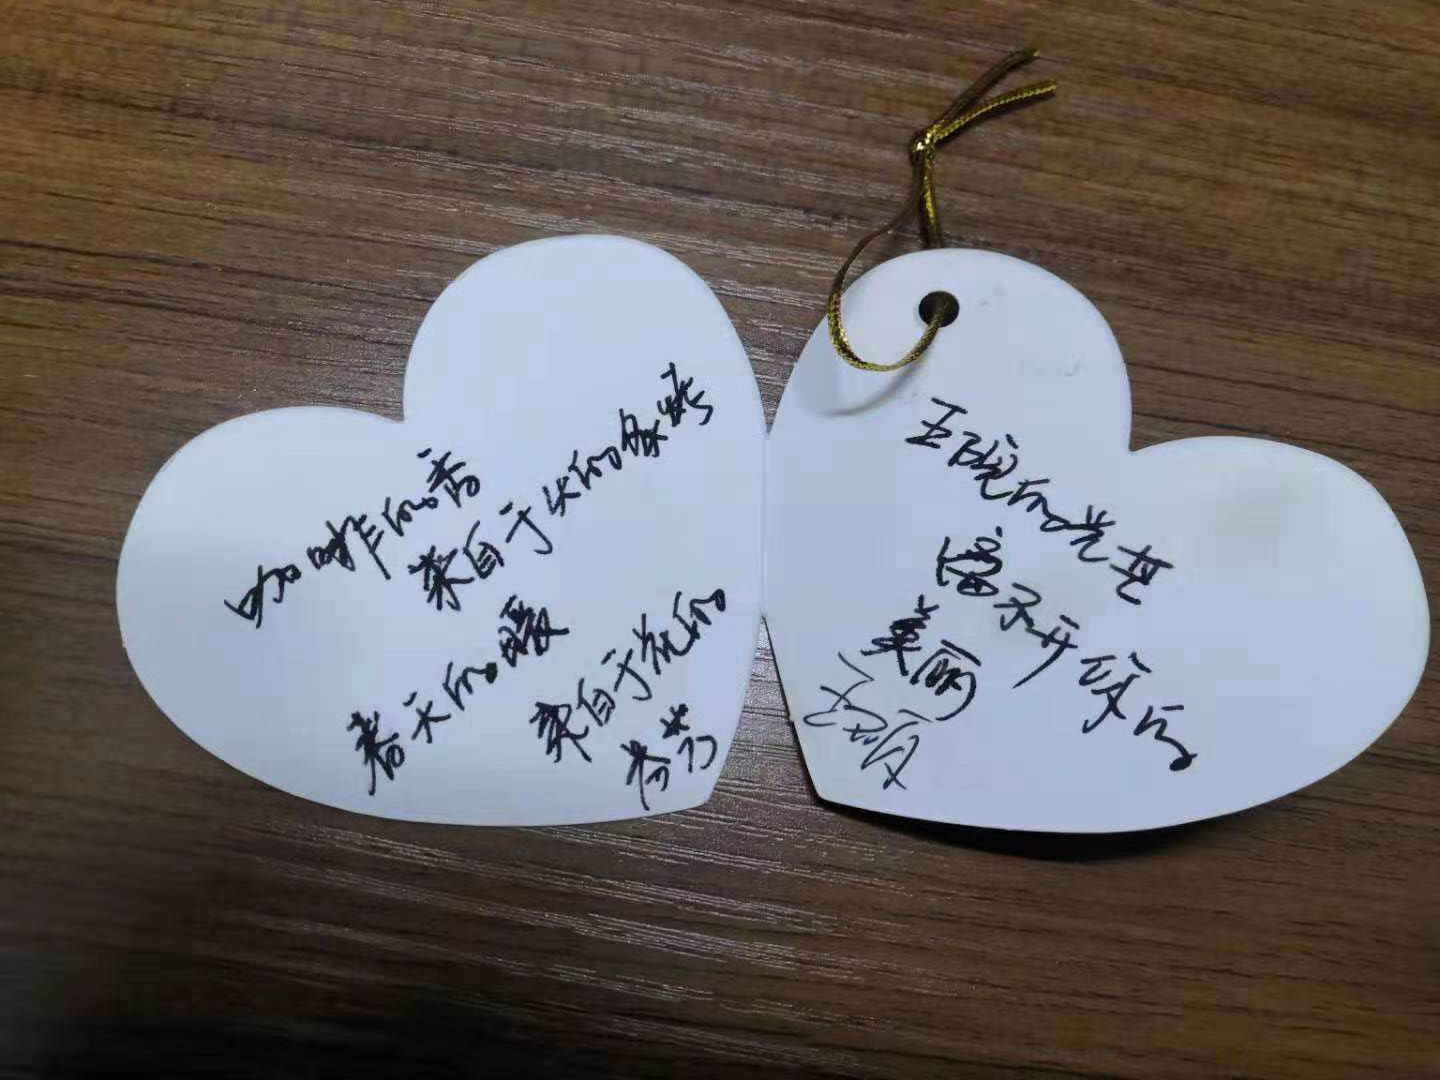 咖啡的香
来自于火的炙烤
春天的暖
来自于花的
芬芳
五院的光芒
离不开您的
美丽